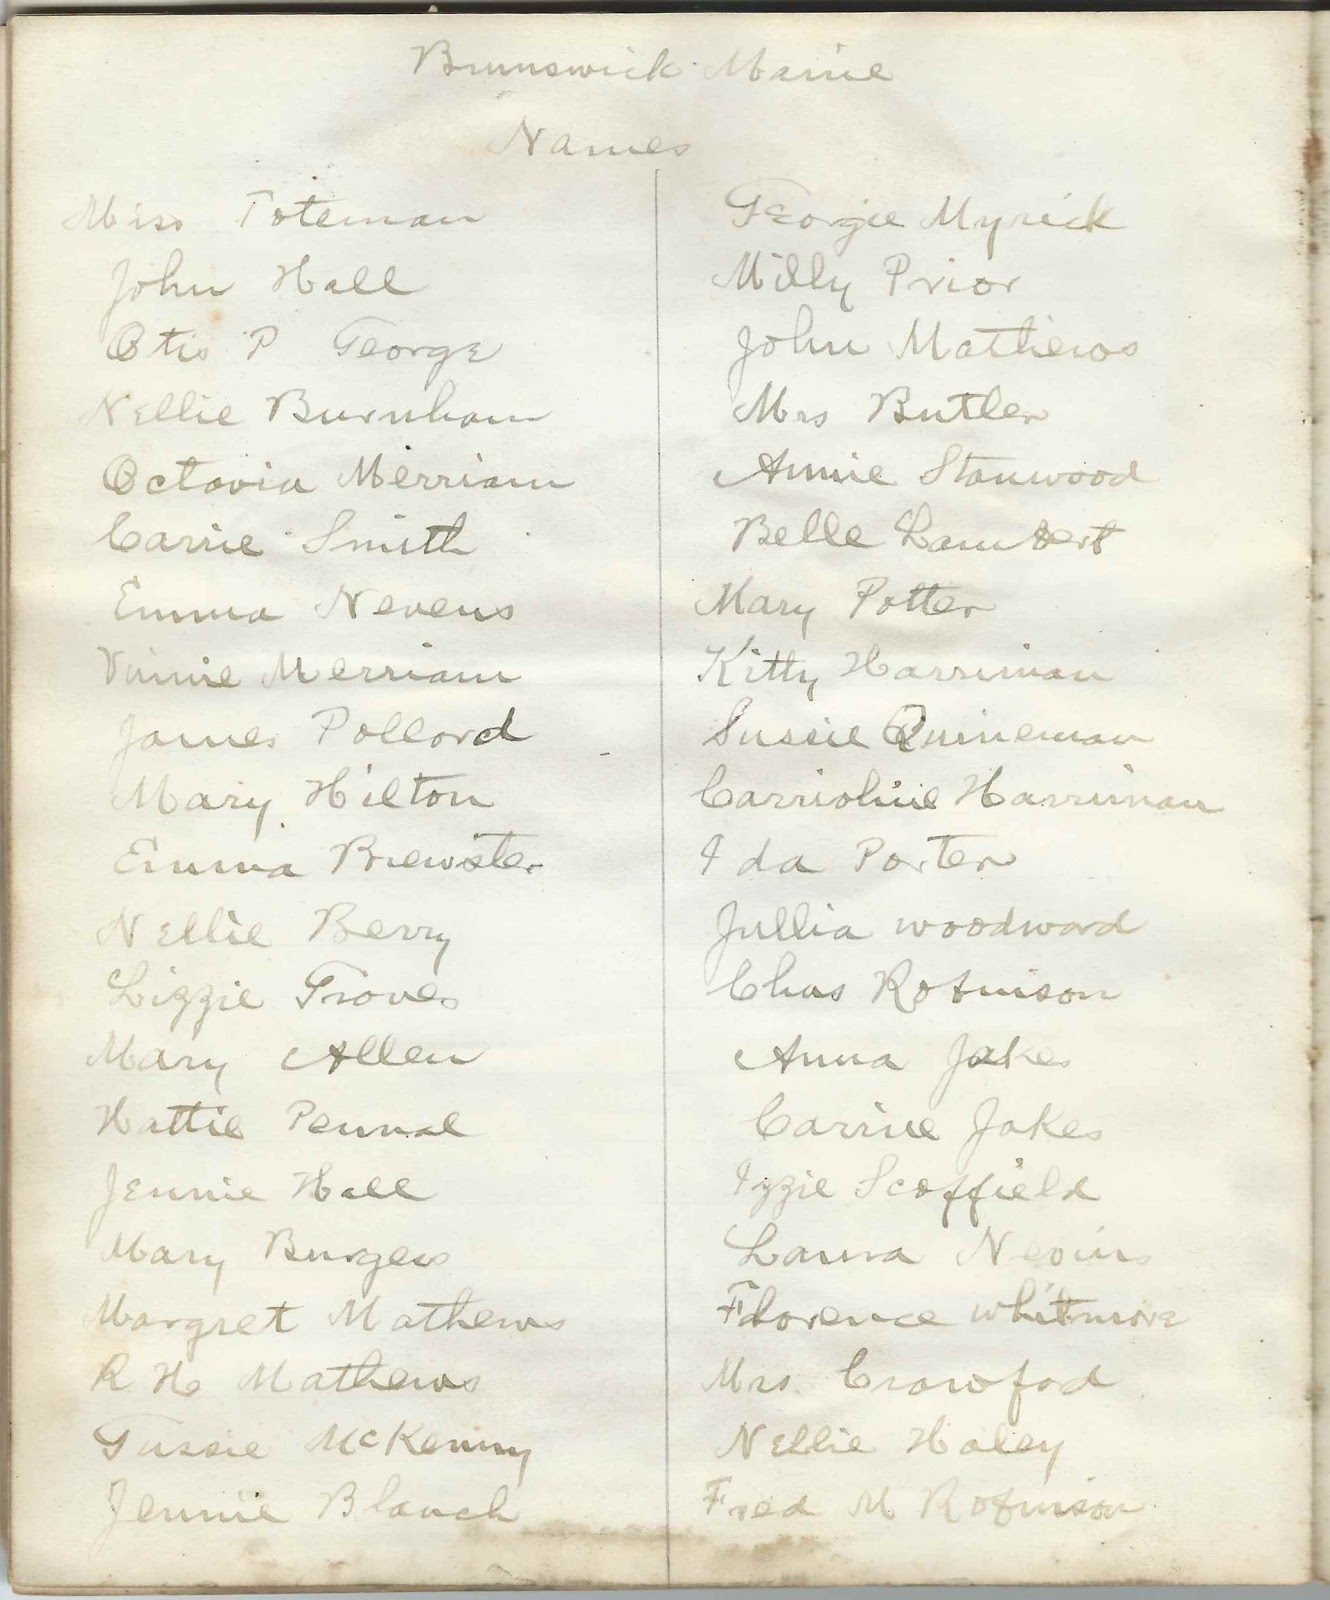 Brunswick Maine
Names
Miss Toteman
John Hall
Otis P George
Nellie Burnham
Octavia Merriam
Carrie Smith
Emma Nevens
Vinnie Merriam
James Pollord
Mary Hilton
Emma Brewster
Nellie Berry
Lizzie Groves
Mary Allen
Hattie Pennal
Jennie Hall
Mary Burgess
Margret Mathews
R H Mathews
Gussie McKenny
Jennie Blanch
Georgie Myrick
Milly Prior
John Mathews
Mrs Butler
Annie Stanwood
Belle Lambert
Mary Potter
Kitty Harriman
Sussie Quineman
Carrioline Harriman
Ida Porter
Jullia woodward
Chas Robinson
Anna Jakes
Carrie Jakes
Izzie Scoffield
Laura Nevins
Florence whitmore
Mrs. Crawfod
Nellie Haley
Fred M Robinson